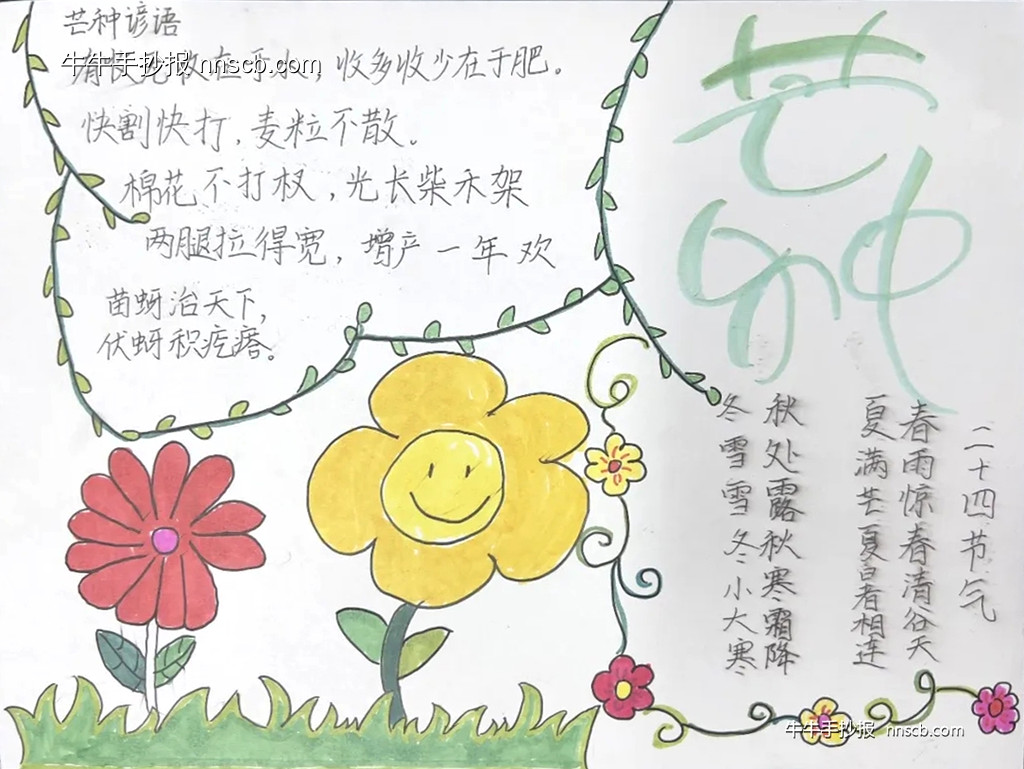 芒种谚语
牛牛手抄报 nnscb.com
收在于水，收多收少在于肥。
快割快打，麦粒不散。
棉花不打杈，光长柴禾架
两腿拉得宽，增产一年欢
苗蚜治天下，
伏蚜积疙瘩。
芒种
二十四节气
春雨惊春清谷天
夏满芒夏暑相连
秋处露秋寒霜降
冬雪雪冬小大寒
牛牛手抄报 nnscb.com